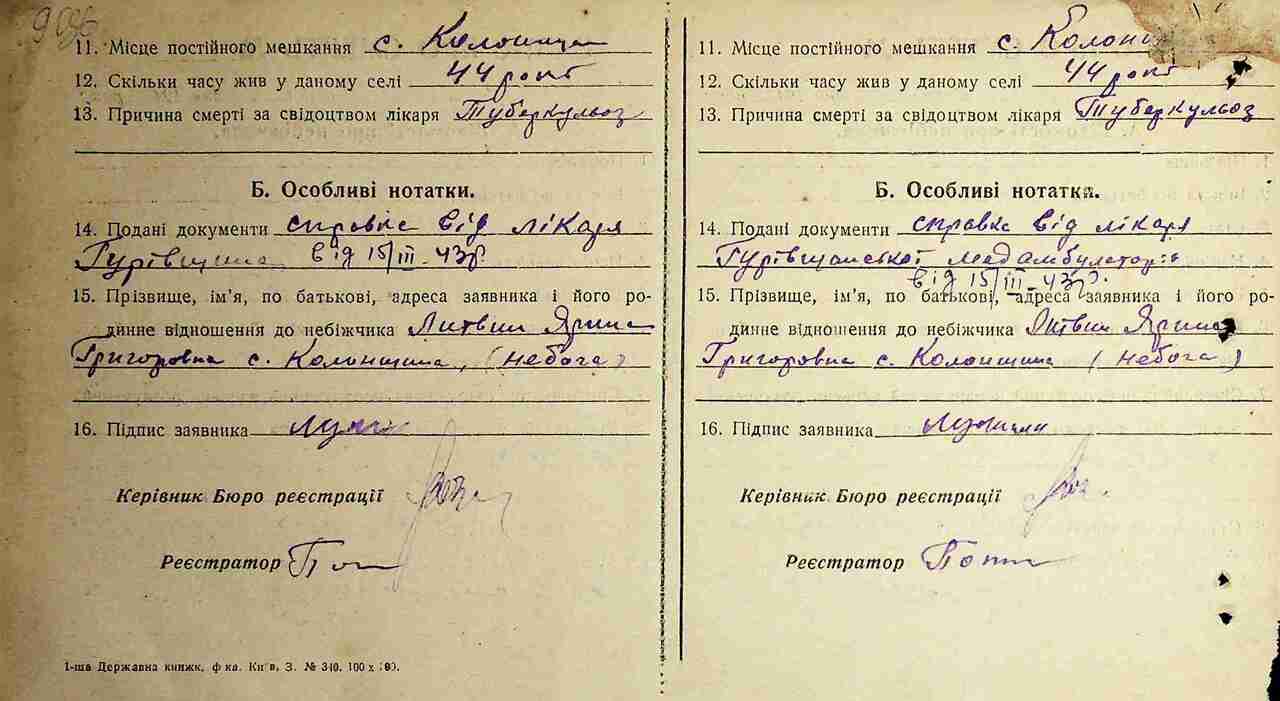 11. Місце постійного мешкання с. Колонщина
12. Скільки часу жив у даному селі 44 рокі
13. Причина смерті за свідоцтвом лікаря Туберкульоз
Б. Особливі нотатки.
14. Подані документи справка від лікаря
Гурівщина від 15/III. 43р.
15. Прізвище, ім'я, по батькові, адреса заявника і його ро-
динне відношення до небіжчика Литвин Ярина
Григоровна с. Колонщина, (небога)
16. Підпис заявника
Керівник Бюро реєстрації
Реєстратор
1-ша Державна книжк. ф-ка. Київ, З. № 340. 100 х
11. Місце постійного мешкання с. Колон
12. Скільки часу жив у даному селі 44 рокі
13. Причина смерті за свідоцтвом лікаря Туберкульоз
Б. Особливі нотатки.
14. Подані документи справка від лікаря
Гурівщанської медамбулаторія
від 15/III. 43р.
15. Прізвище, ім'я, по батькові, адреса заявника і його ро-
динне відношення до небіжчика Литвин Ярина
Григоровна с. Колонщина (небога)
16. Підпис заявника
Керівник Бюро реєстрації
Реєстратор